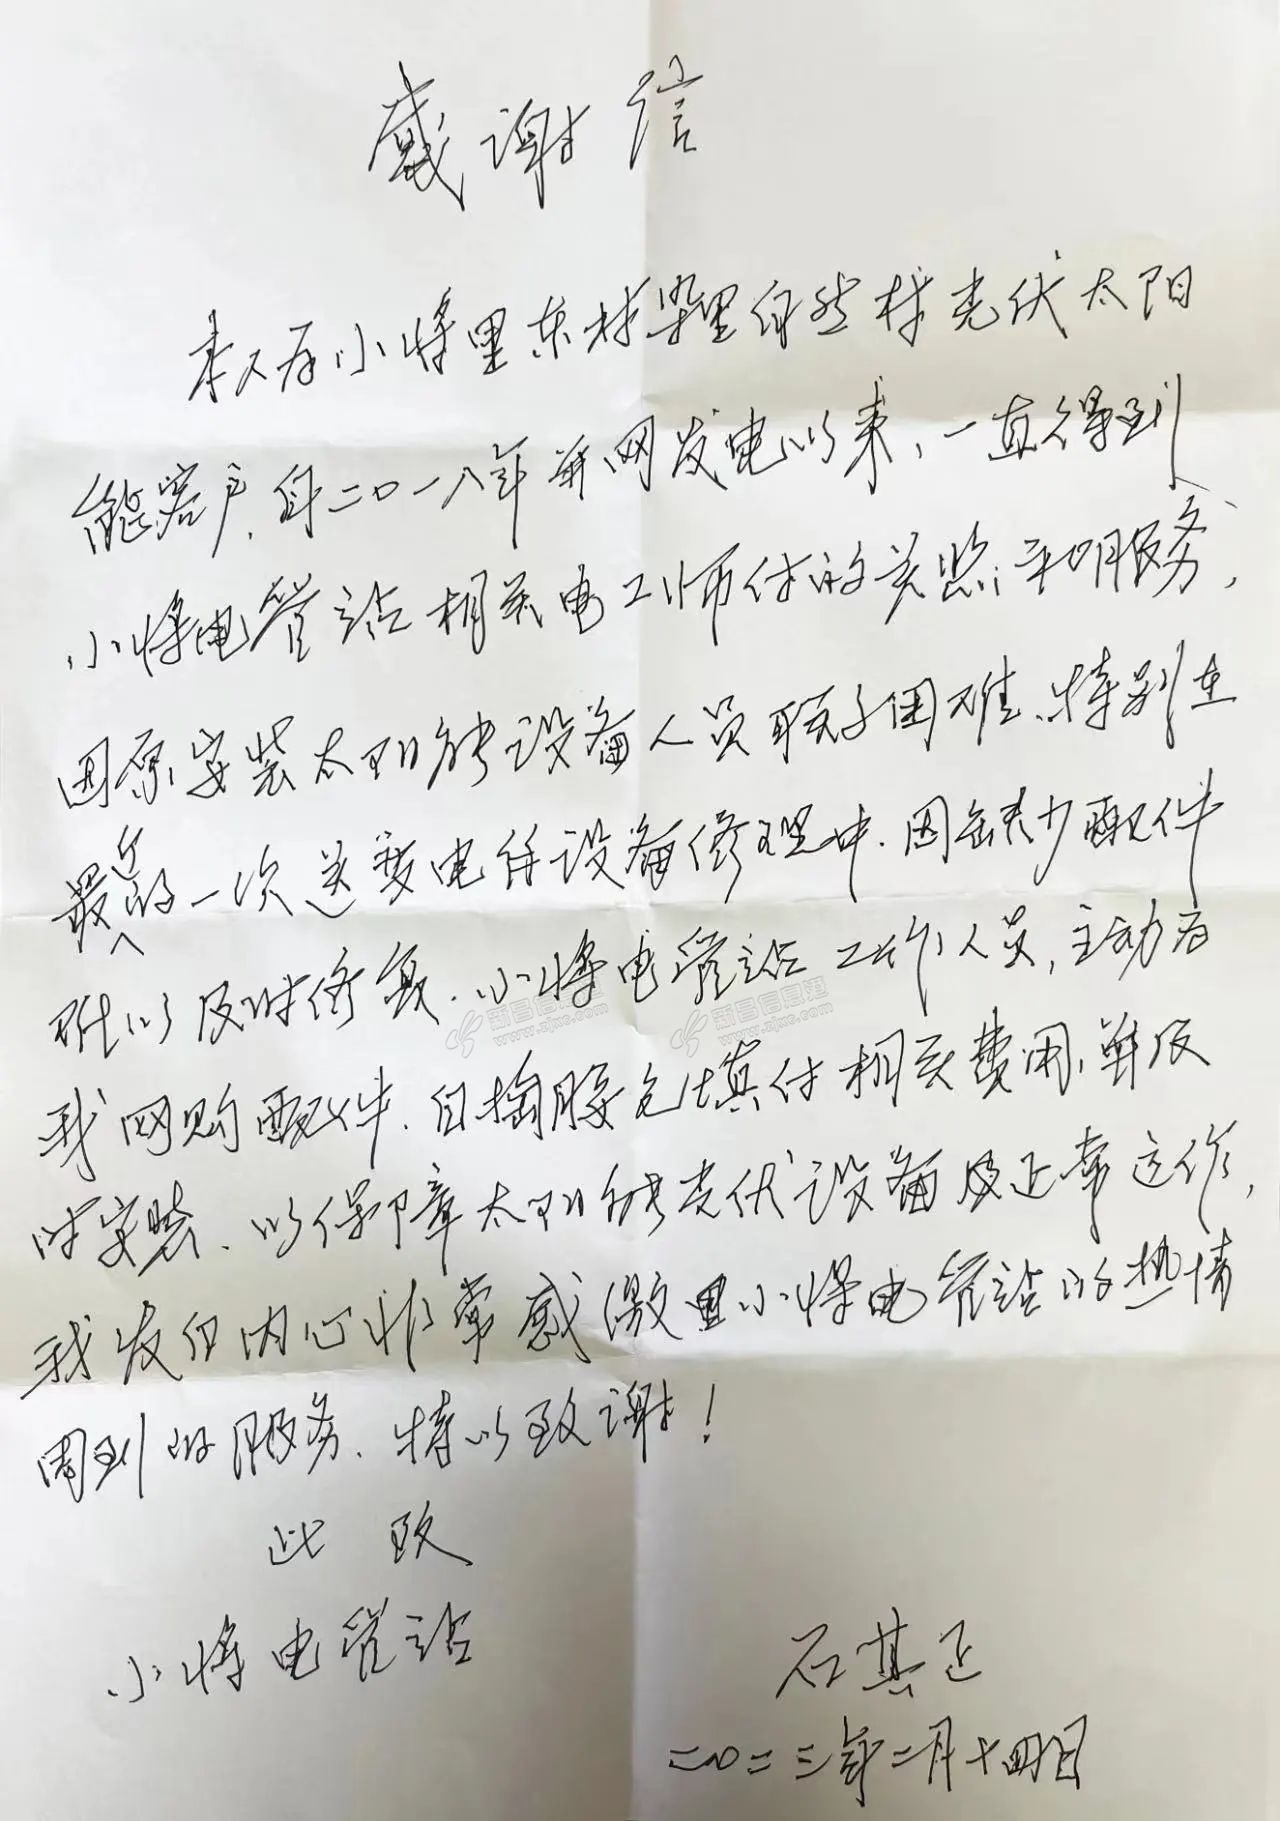 感谢信
本人为小将里东村染里自然村光伏太阳
能客户，自二〇一八年并网发电以来，一直得到
小将电管站相关电工师付的关照和服务，
因原安装太阳能设备人员联系困难、特别在
最近的一次送变电任设备修理中，因缺少配件
难以及时修复，小将电管站工作人员，主动为
我网购配件，自掏腰包填付相关费用，并及
时安装，以保障太阳能光伏设备及正常运作，
我发自内心非常感激里小将电管站的热情
周到的服务，特以致谢！
此致
小将电管站
石其正
二〇二三年二月十四日
新昌信息港
www.zjxc.com
新昌信息港
www.zjxc.com